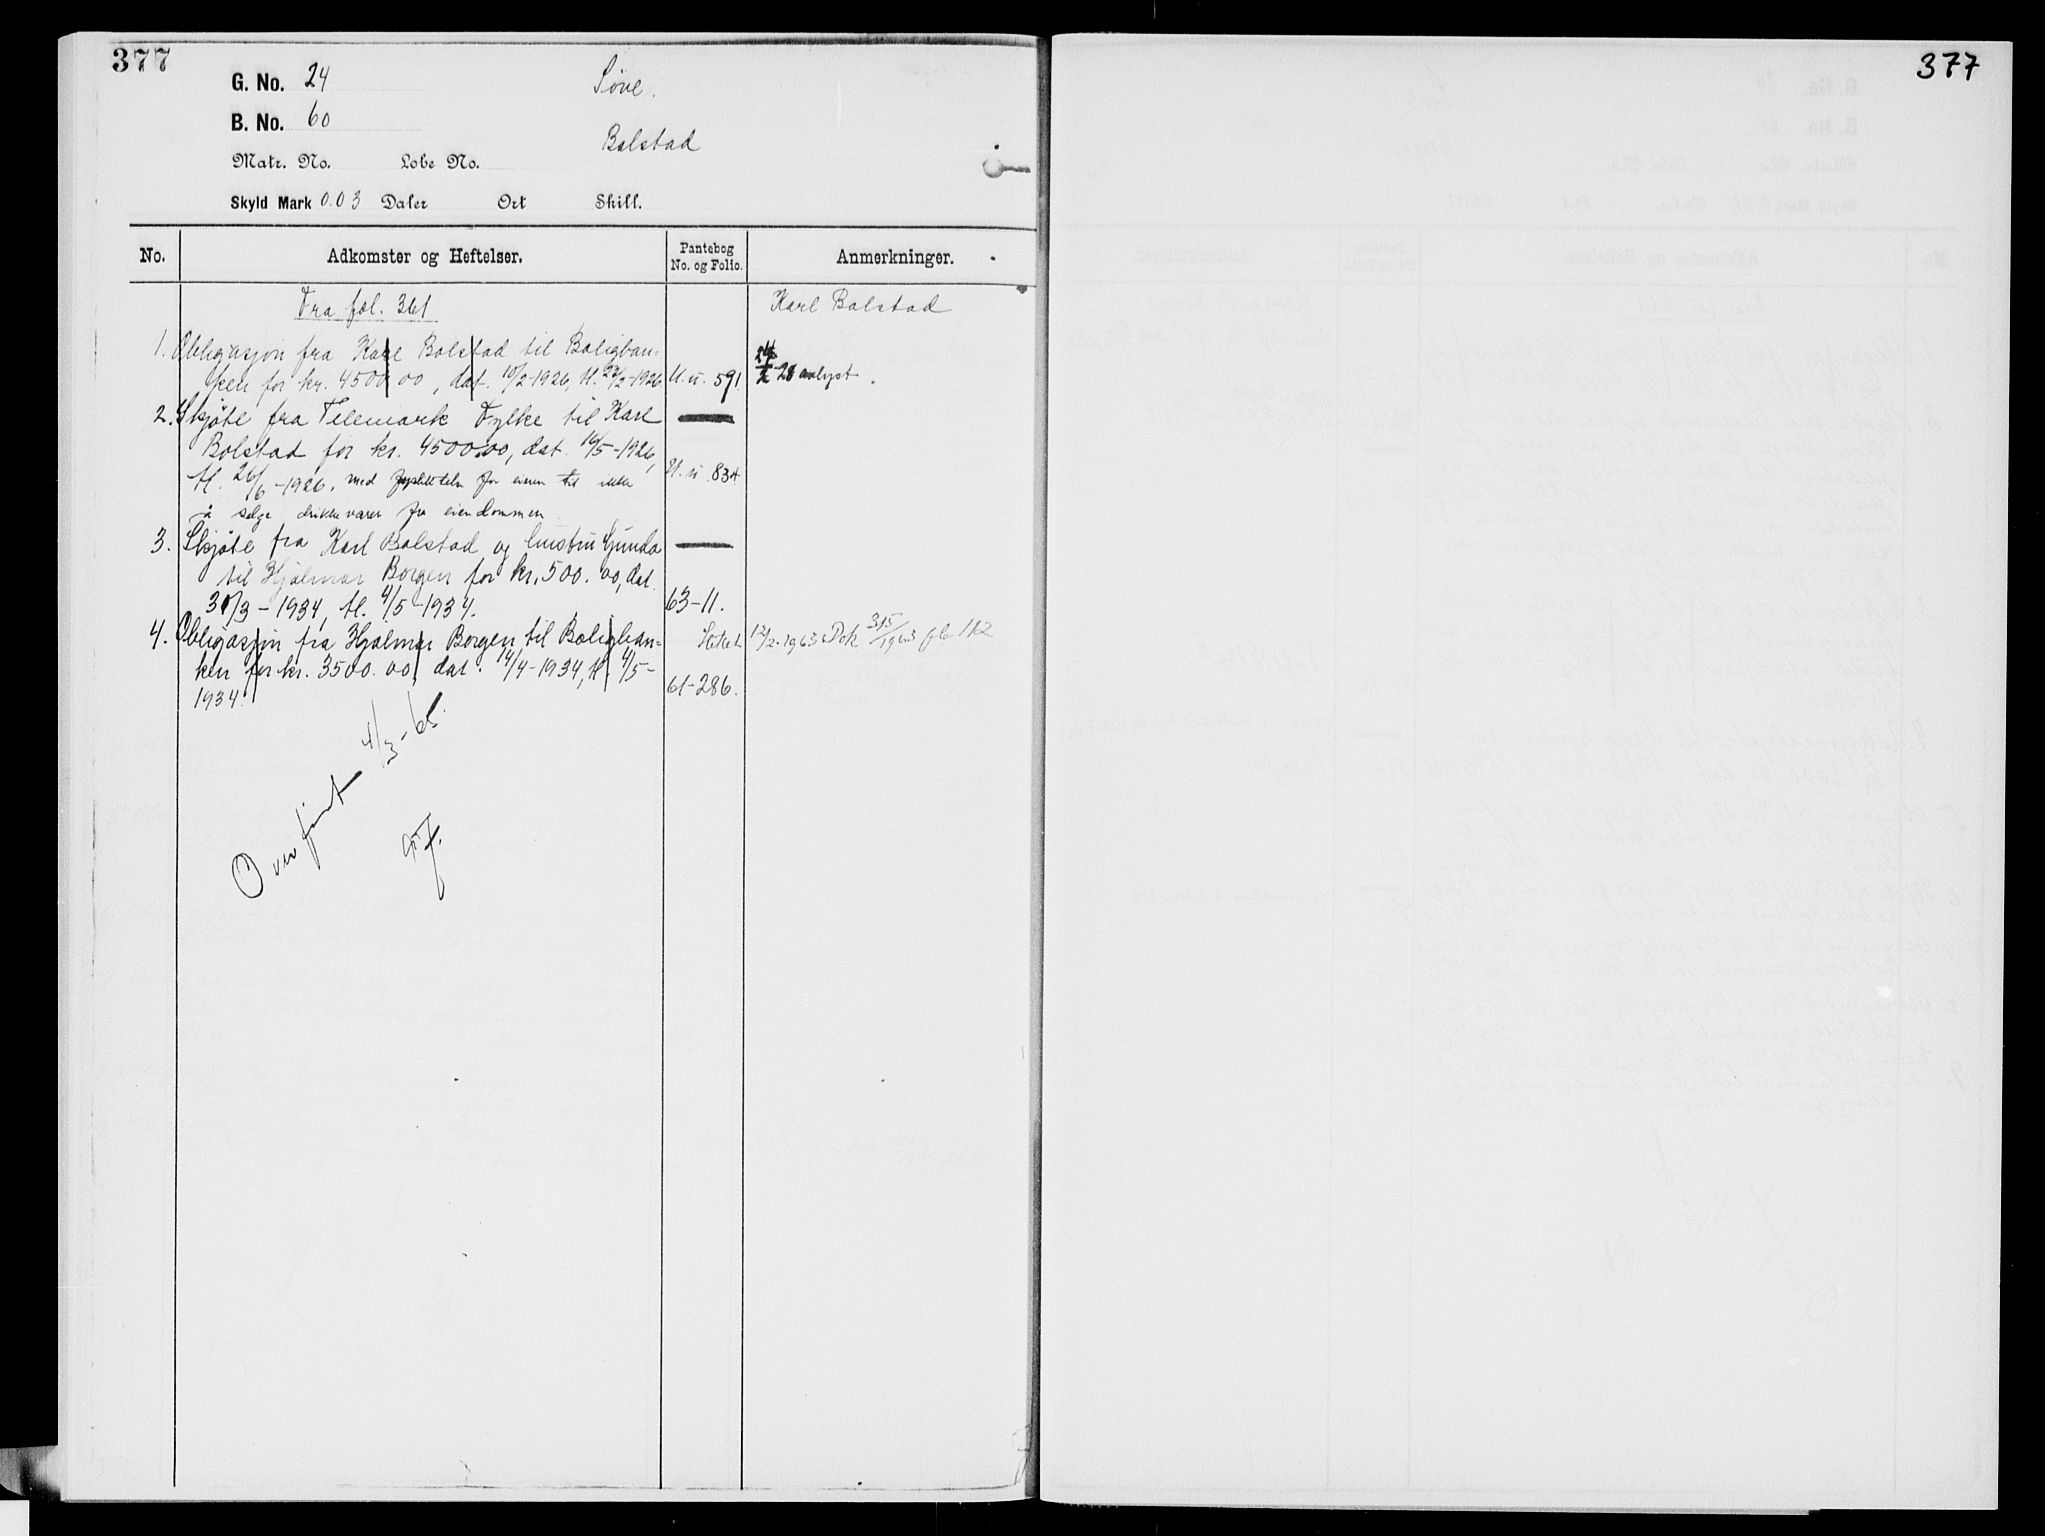 377
G. No. 24
Søve.
B. No. 60
Bolstad
Matr. No. Løbe No.
Skyld Mark 0.03 Daler Ort Skill.
No. Adkomster og Heftelser. Pantebog No. og Folio. Anmerkninger.
Fra fol. 361
Karl Bolstad
1. Obligasjon fra Karl Bolstad til Boligban-
ken for kr. 4500.00, dat. 10/2-1926, tl. 22/2-1926 U. u. 591. 24/2 28 avlyst.
2. Skjöte fra Telemark Fylke til Karl
Bolstad for kr. 4500.00, dat. 16/5-1926,
tl. 26/6-1926, med forpliktelse for eieren til ikke U. u. 834
å selge drikkevarer fra eiendommen.
3. Skjöte fra Karl Bolstad og hustru Gunda
til Hjalmar Borgen for kr. 500.00, dat.
31/3-1934, tl. 4/5-1934. 63-11.
4. Obligasjon fra Hjalmar Borgen til Boligban-
Slettet 12/2-1963 Dok 315/1963 fb 112
ken for kr. 3500.00, dat. 14/4-1934, tl. 4/5-
1934. 61-286.
Overfört 4/3-65
377